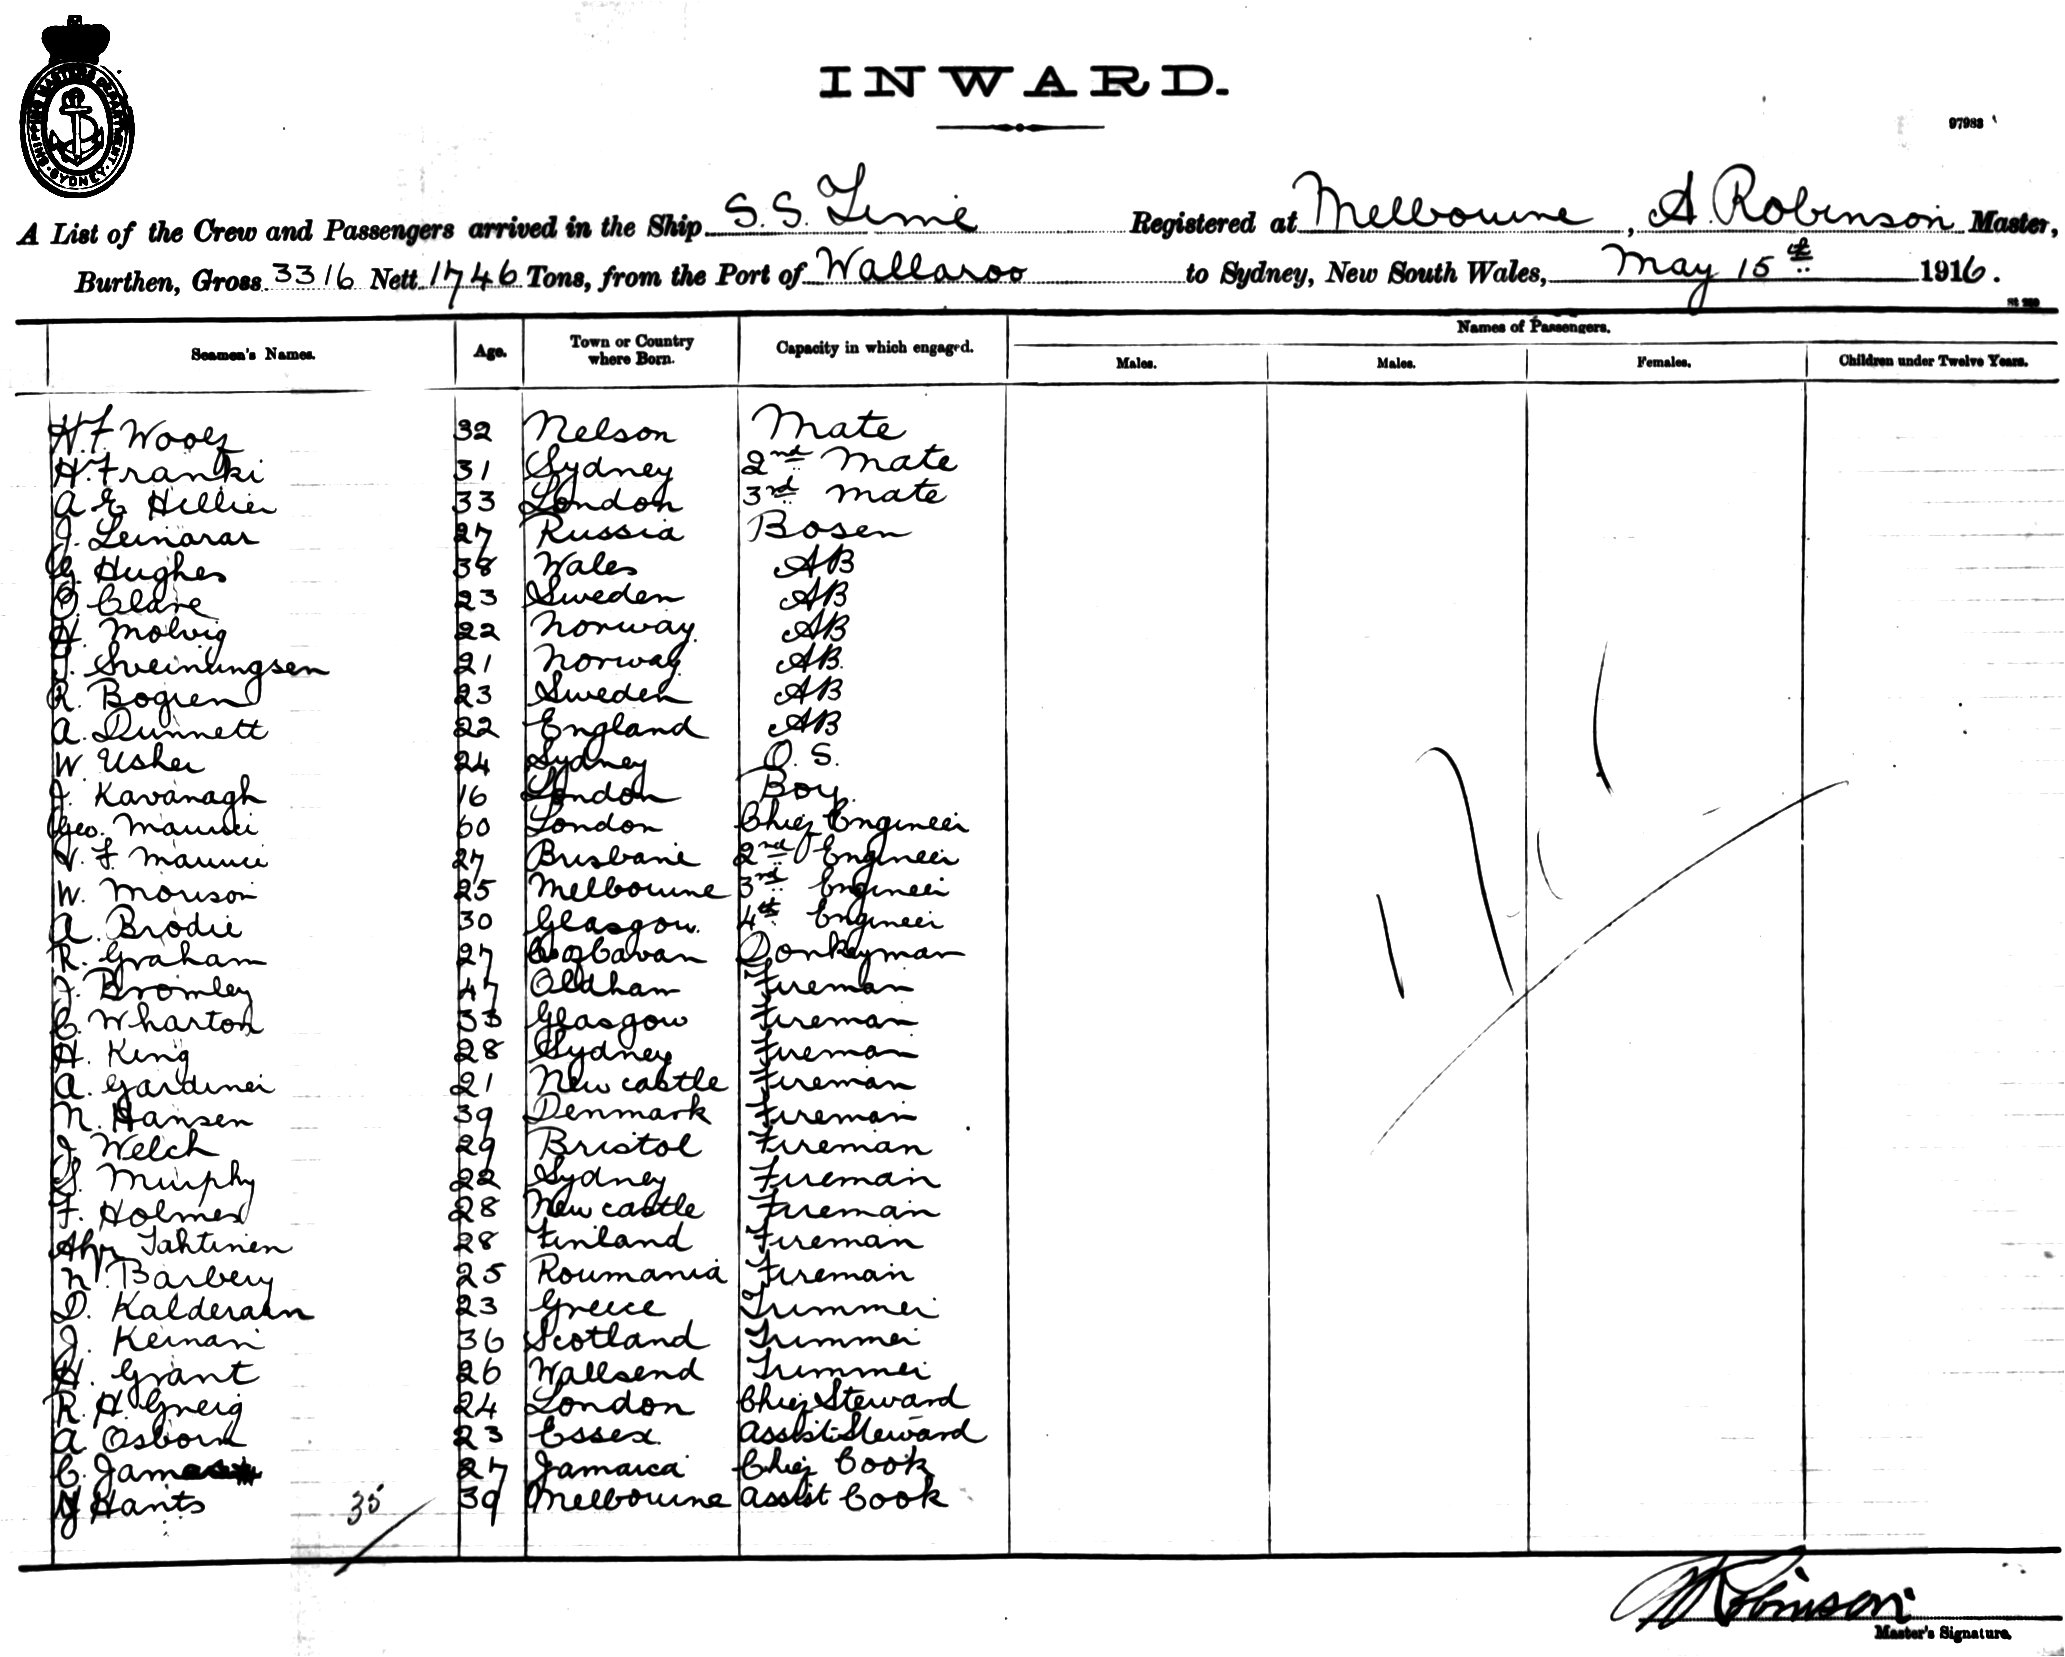 SHIPPING MASTERS DEPARTMENT. SYDNEY.
INWARD.
97983
A List of the Crew and Passengers arrived in the Ship S.S. Time Registered at Melbourne, A. Robinson Master,
Burthen, Gross 3316 Nett 1746 Tons, from the Port of Wallaroo to Sydney, New South Wales, May 15th 1916.
Names of Passengers.
Seamen's Names. Age. Town or Country where Born. Capacity in which engaged. Males. Males. Females. Children under Twelve Years.
H.F. Woolf 32 Nelson Mate
H. Franki 31 Sydney 2nd Mate
A E Hillier 33 London 3rd mate
J. Leinarar 27 Russia Bosen
G. Hughes 38 Wales AB
O. Clare 23 Sweden AB
H. Molvig 22 Norway AB
J. Sveinungsen 21 Norway AB
R. Bogren 23 Sweden AB
A. Dunnett 22 England AB
W. Usher 24 Sydney O.S.
J. Kavanagh 16 London Boy
Geo. 60 London Chief Engineer
V. F. 27 Brisbane 2nd Engineer
W. Morison 25 Melbourne 3rd Engineer
A. Brodie 30 Glasgow 4th Engineer
R. Graham 27 Co of Cavan Donkeyman
J. Bromley 47 Oldham Fireman
C. Wharton 33 Glasgow Fireman
H. King 28 Sydney Fireman
A. Gardiner 21 Newcastle Fireman
N. Hansen 39 Denmark Fireman
J. Welch 29 Bristol Fireman
S. Murphy 22 Sydney Fireman
F. Holmes 28 Newcastle Fireman
Tahtinen 28 Finland Fireman
N. Barbery 25 Roumania Fireman
D. Kalderaan 23 Greece Trimmer
J. Keinan 36 Scotland Trimmer
H. Grant 26 Wallsend Trimmer
R. H. Greig 24 London Chief Steward
A Osborn 23 Essex Assist Steward
C. James 27 Jamaica Chief Cook
Hants 39 Melbourne Assist Cook
35
Robinson
Master's Signature.